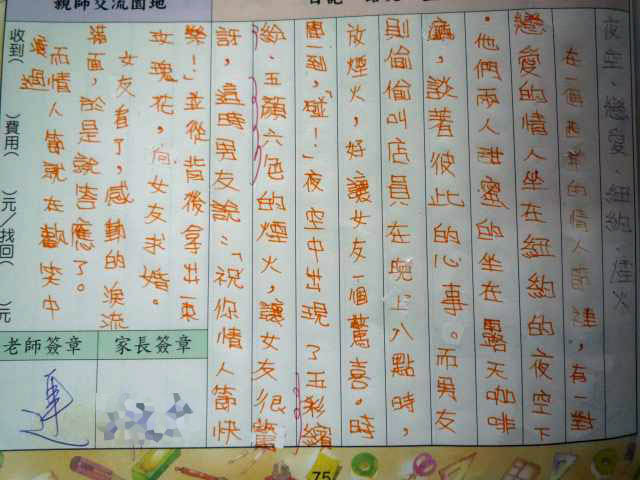 親師交流園地
夜空、戀愛、紐約、煙火
在一個的情人節裡，有一對
戀愛的情人坐在紐約的夜空下
。他們兩人甜蜜的坐在露天咖啡
廳，談著彼此的心事。而男友
則偷偷叫店員在晚上八點時，
放煙火，好讓女友一個驚喜。時
間一到，「碰！」夜空中出現了五彩繽
紛、五顏六色的煙火，讓女友很驚
訝，這時男友說：「祝你情人節快
樂！」並從背後拿出一束
玫瑰花，向女友求婚。
女友看了，感動的淚流
滿面，於是說答應了。
而情人節就在歡笑中
渡過
收到（　）費用（　）元/找回（　）元
家長簽章
老師簽章
75